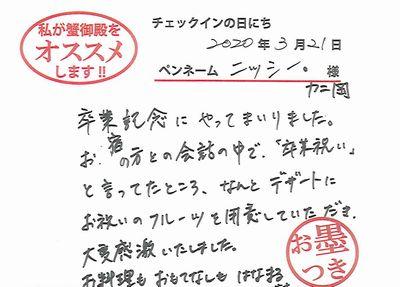 私が蟹御殿を
オススメ
します!!
チェックインの日にち
2020年3月21日
ペンネーム ニッシー。 様
卒業記念にやってまいりました。
お宿の方との会話の中で、「卒業祝い」
と言ってたところ、なんとデザートに
お祝いのフルーツを用意していただき、
大変感激いたしました。
お料理もおもてなしも はなまる
お墨
つき